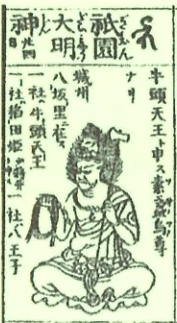 祇園
大明
神
牛頭天王ト申ス素盞烏尊
ナリ
城州
八坂里ニ在ス
一社ハ牛頭天王
一社ハ稲田姫
一社ハ八王子